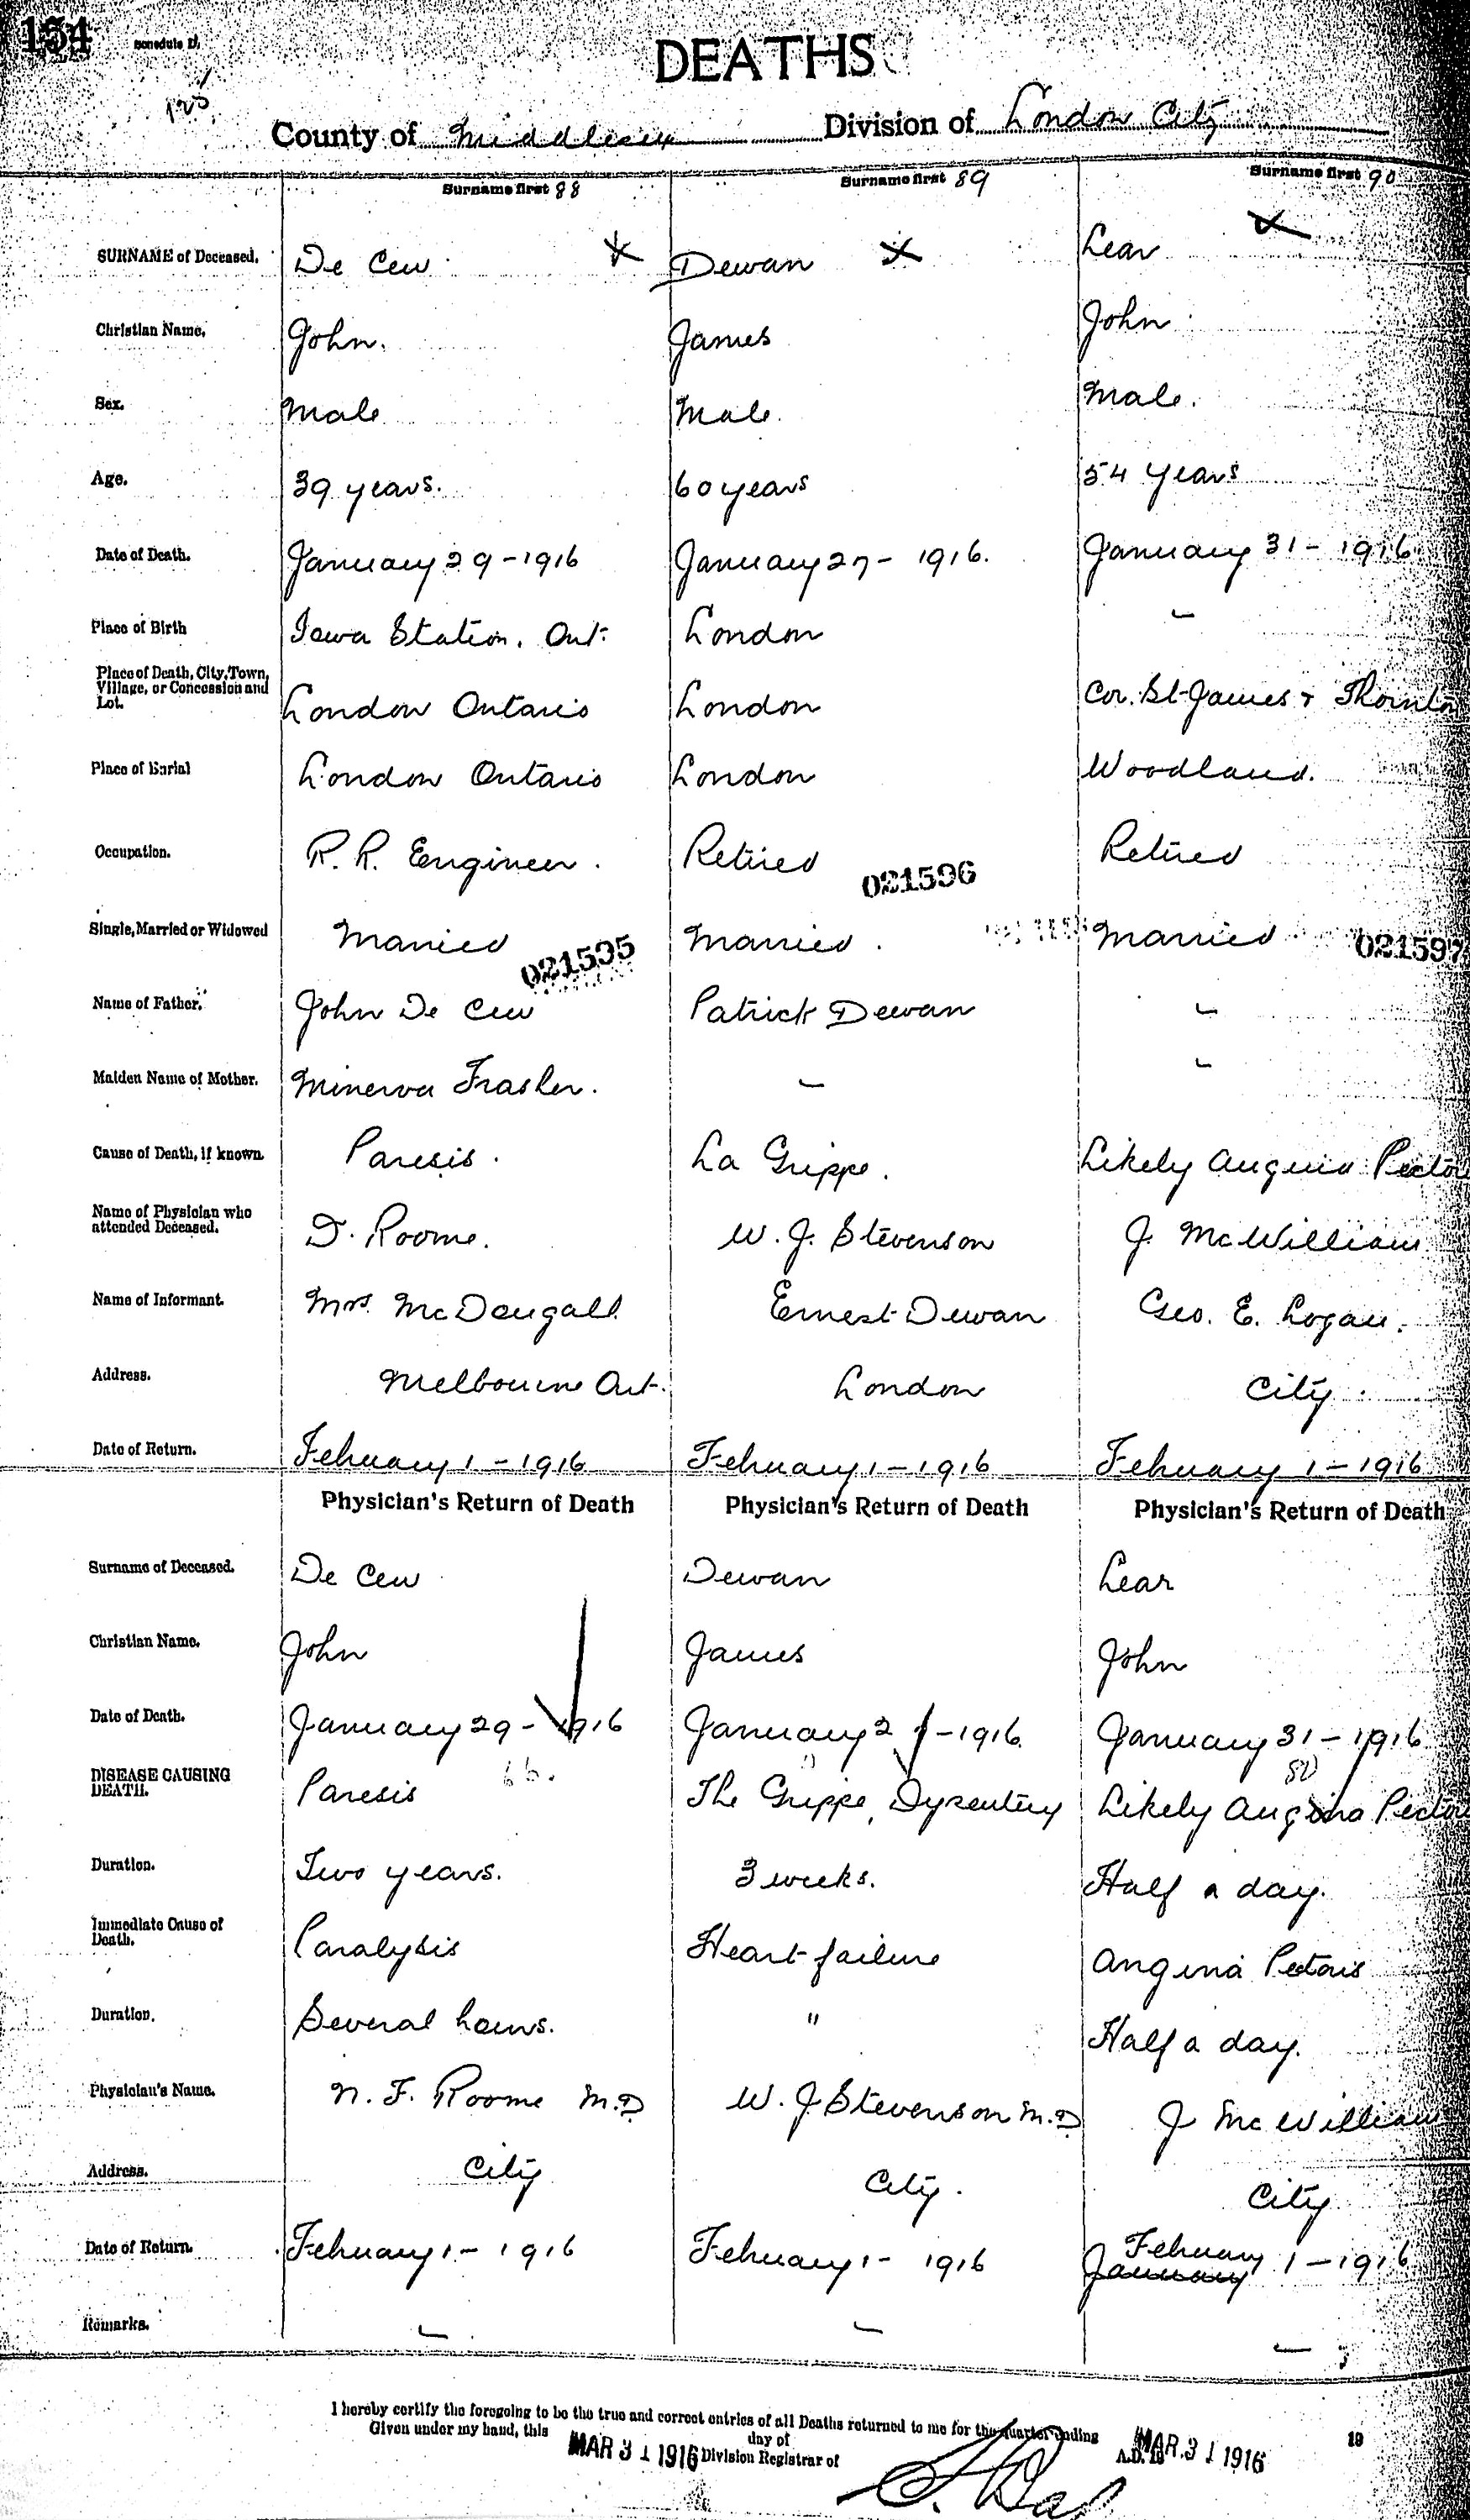 154 Schedule D.
125
DEATHS
County of Middlesex Division of London City
Surname first 88 Surname first 89 Surname first 90
SURNAME of Deceased. De Cew Dewan Lear
Christian Name. John. James John
Sex. Male Male. Male.
Age. 39 years. 60 years 54 Years
Date of Death. January 29-1916 January 27- 1916. January 31- 1916
Place of Birth Iowa Station. Ont. London -
Place of Death, City, Town,
Village, or Concession and
Lot. London Ontario London Cor. St James + Thornton
Place of Burial London Ontario London Woodland.
Occupation. R. R. Engineer. Retired 021596 Retired
Single, Married or Widowed Married 021595 Married. Married 021597
Name of Father. John De Cew Patrick Dewan -
Maiden Name of Mother. Minerva Frasher. - -
Cause of Death, if known. Paresis. La Grippe. Likely Angina Pecto
Name of Physician who
attended Deceased. D. Roome. W. J. Stevenson J. McWilliam
Name of Informant. Mrs. McDougall Ernest Dewan Geo. E. Logan.
Address. Melbourne Ont. London City
Date of Return. February 1-1916 February 1-1916 February 1-1916
Physician's Return of Death Physician's Return of Death Physician's Return of Death
Surname of Deceased. De Cew Dewan Lear
Christian Name. John James John
Date of Death. January 29-1916 January 2 -1916. January 31-1916
DISEASE CAUSING
DEATH. Paresis 66. The Grippe, Dysentery Likely Angina Pecto
Duration. Two years. 3 weeks. Half a day.
Immediate Cause of
Death. Paralysis Heart failure Angina Pectoris
Duration. Several hours. " Half a day.
Physician's Name. N. F. Roome M.D W. J Stevenson M.D J McWilliam
Address. City City. City
Date of Return. February 1- 1916 February 1- 1916 January February 1-1916
Remarks. - - -
I hereby certify the foregoing to be the true and correct entries of all Deaths returned to me for the quarter ending MAR. 31 1916 19
Given under my hand, this MAR 31 1916 day of A.D. 19
Division Registrar of